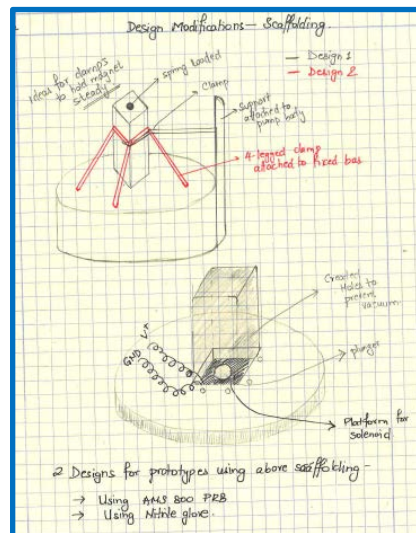 Design Modifications - Scaffolding
Ideas for clamps
to hold magnet
steady
spring loaded
Clamp
— Design 1
— Design 2
Support
attached to
pump body
4-legged clamp
attached to fixed bas
Created
Holes to
prevent
vacuum.
GND
plunger
Platform for
solenoid
2 Designs for prototypes using above scaffolding -
→ Using AMS 800 PRB
→ Using Nitrile glove.